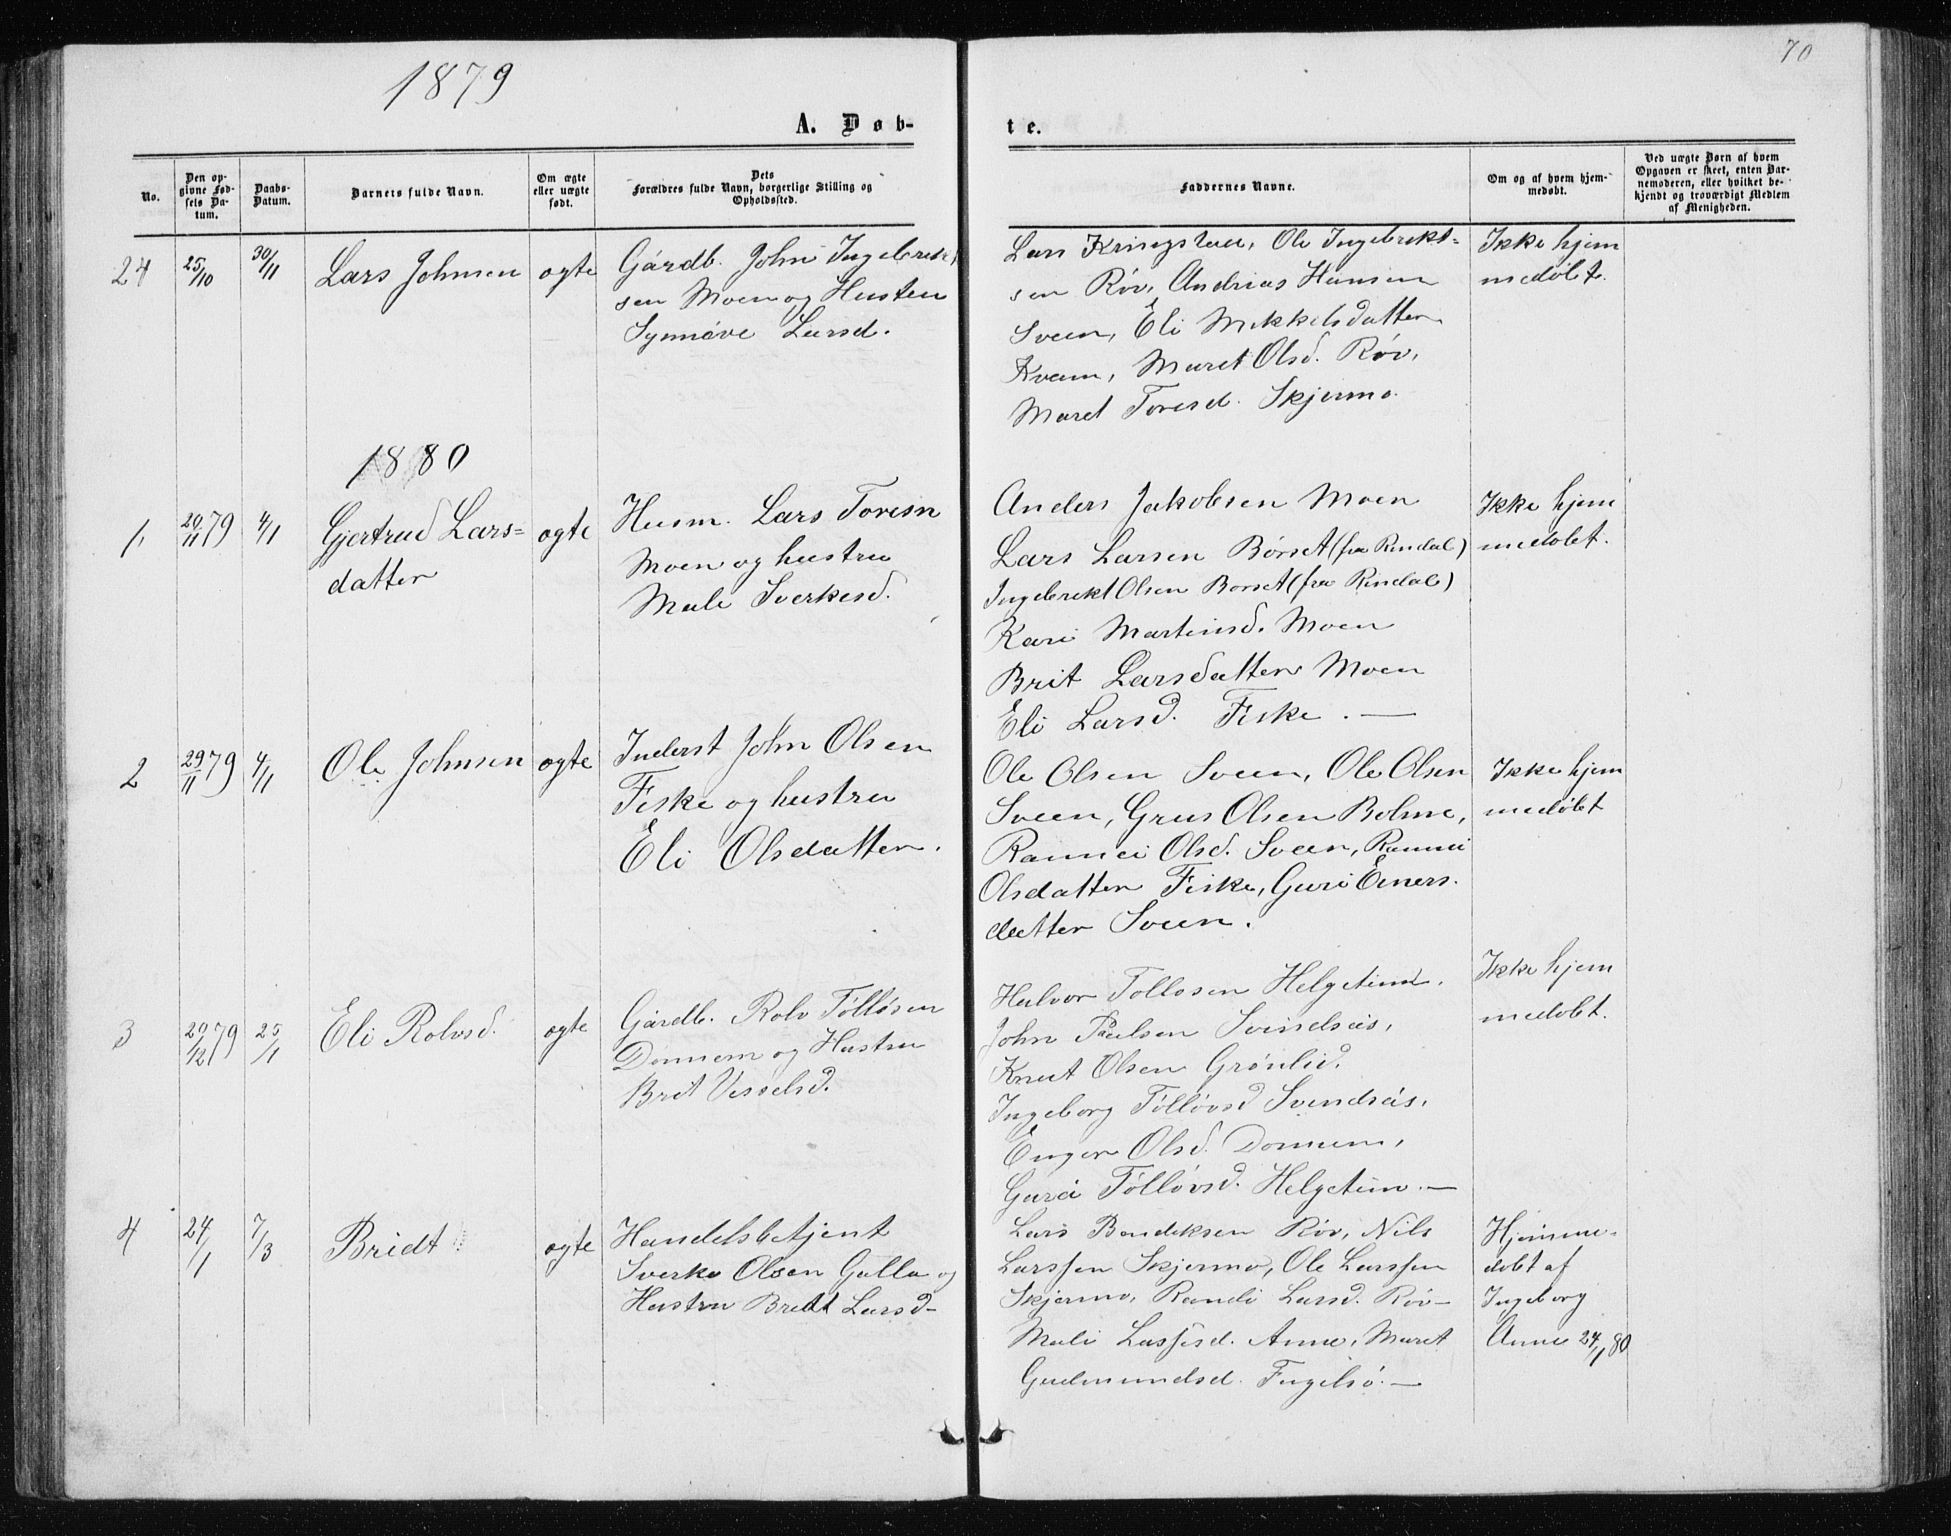 70
1879
A. Døb-
te.
No.
Den op-
givne Fød-
sels Da-
tum.
Daabs-
Datum.
Barnets fulde Navn.
Om ægte
eller uægte
født.
Dets
Forældres fulde Navn, borgerlige Stilling og
Opholdssted.
Faddernes Navne.
Om og af hvem hjem-
medøbt.
Ved uægte Børn af hvem
Opgaven er skeet, enten Bar-
nemoderen, eller hvilket be-
kjendt og troværdigt Medlem
af Menigheden.
24
25/10
30/11
Lars Johnsen
ægte
Gårdb. John Ingebrikt
sen Moen og Hustru
Synnøve Larsd.
Lars Kringsluen, Ole Ingebrikt-
sen Røv, Andrias Hansen
Sveen, Eli Mikkelsdatter
Kvam, Maret Olsd. Røv,
Maret Toresd. Skjermo.
Ikke hjem
medøbt.
1880
1.
20/11 79
4/1
Gjertrud Lars-
datter
ægte
Husm. Lars Toresn
Moen og hustru
Mali Sverkesd.
Anders Jakobsen Moen
Lars Larsen Børset (fra Rindal)
Ingebrikt Olsen Børset (fra Rindal)
Kari Martinsd. Moen
Brit Larsdatter Moen
Eli Larsd. Fiske. —
Ikke hjem
medøbt.
2
29/11 79
4/1
Ole Johnsen
ægte
Inderst John Olsen
Fiske og hustru
Eli Olsdatter.
Ole Olsen Sveen, Ole Olsen
Sveen, Grus Olsen Bolme,
Rannei Olsd. Sveen, Rannei
Olsdatter Fiske, Guri Einers-
datter Sveen.
Ikke hjem
medøbt
3
20/12 79
25/1
Eli Rolvsd.
ægte
Gårdb. Rolv Tølløsen
Dønnem og Hustru
Brit Vesselsd.
Halvor Tollosen Helgetun.
John Paulsen Svindsås,
Knut Olsen Grønlid.
Ingeborg Tølløvsd Svindsås,
Enger Olsd. Dønnem,
Guri Tølløvsd. Helgetun. —
Ikke hjem
medøbt.
4
24/1
7/3
Bridt
ægte
Handelsbetjent
Sverke Olsen Galla og
Hustru Bridt Larsd-
Lars Bendiksen Røv, Nils
Larssen Skjermo, Ole Larssen
Skjermo, Randi Larsd. Røv-
Mali Lassesd. Anne, Maret
Gudmundsd. Fugelsø. —
Hjemme-
døbt af
Ingeborg
Anne 24/1 80